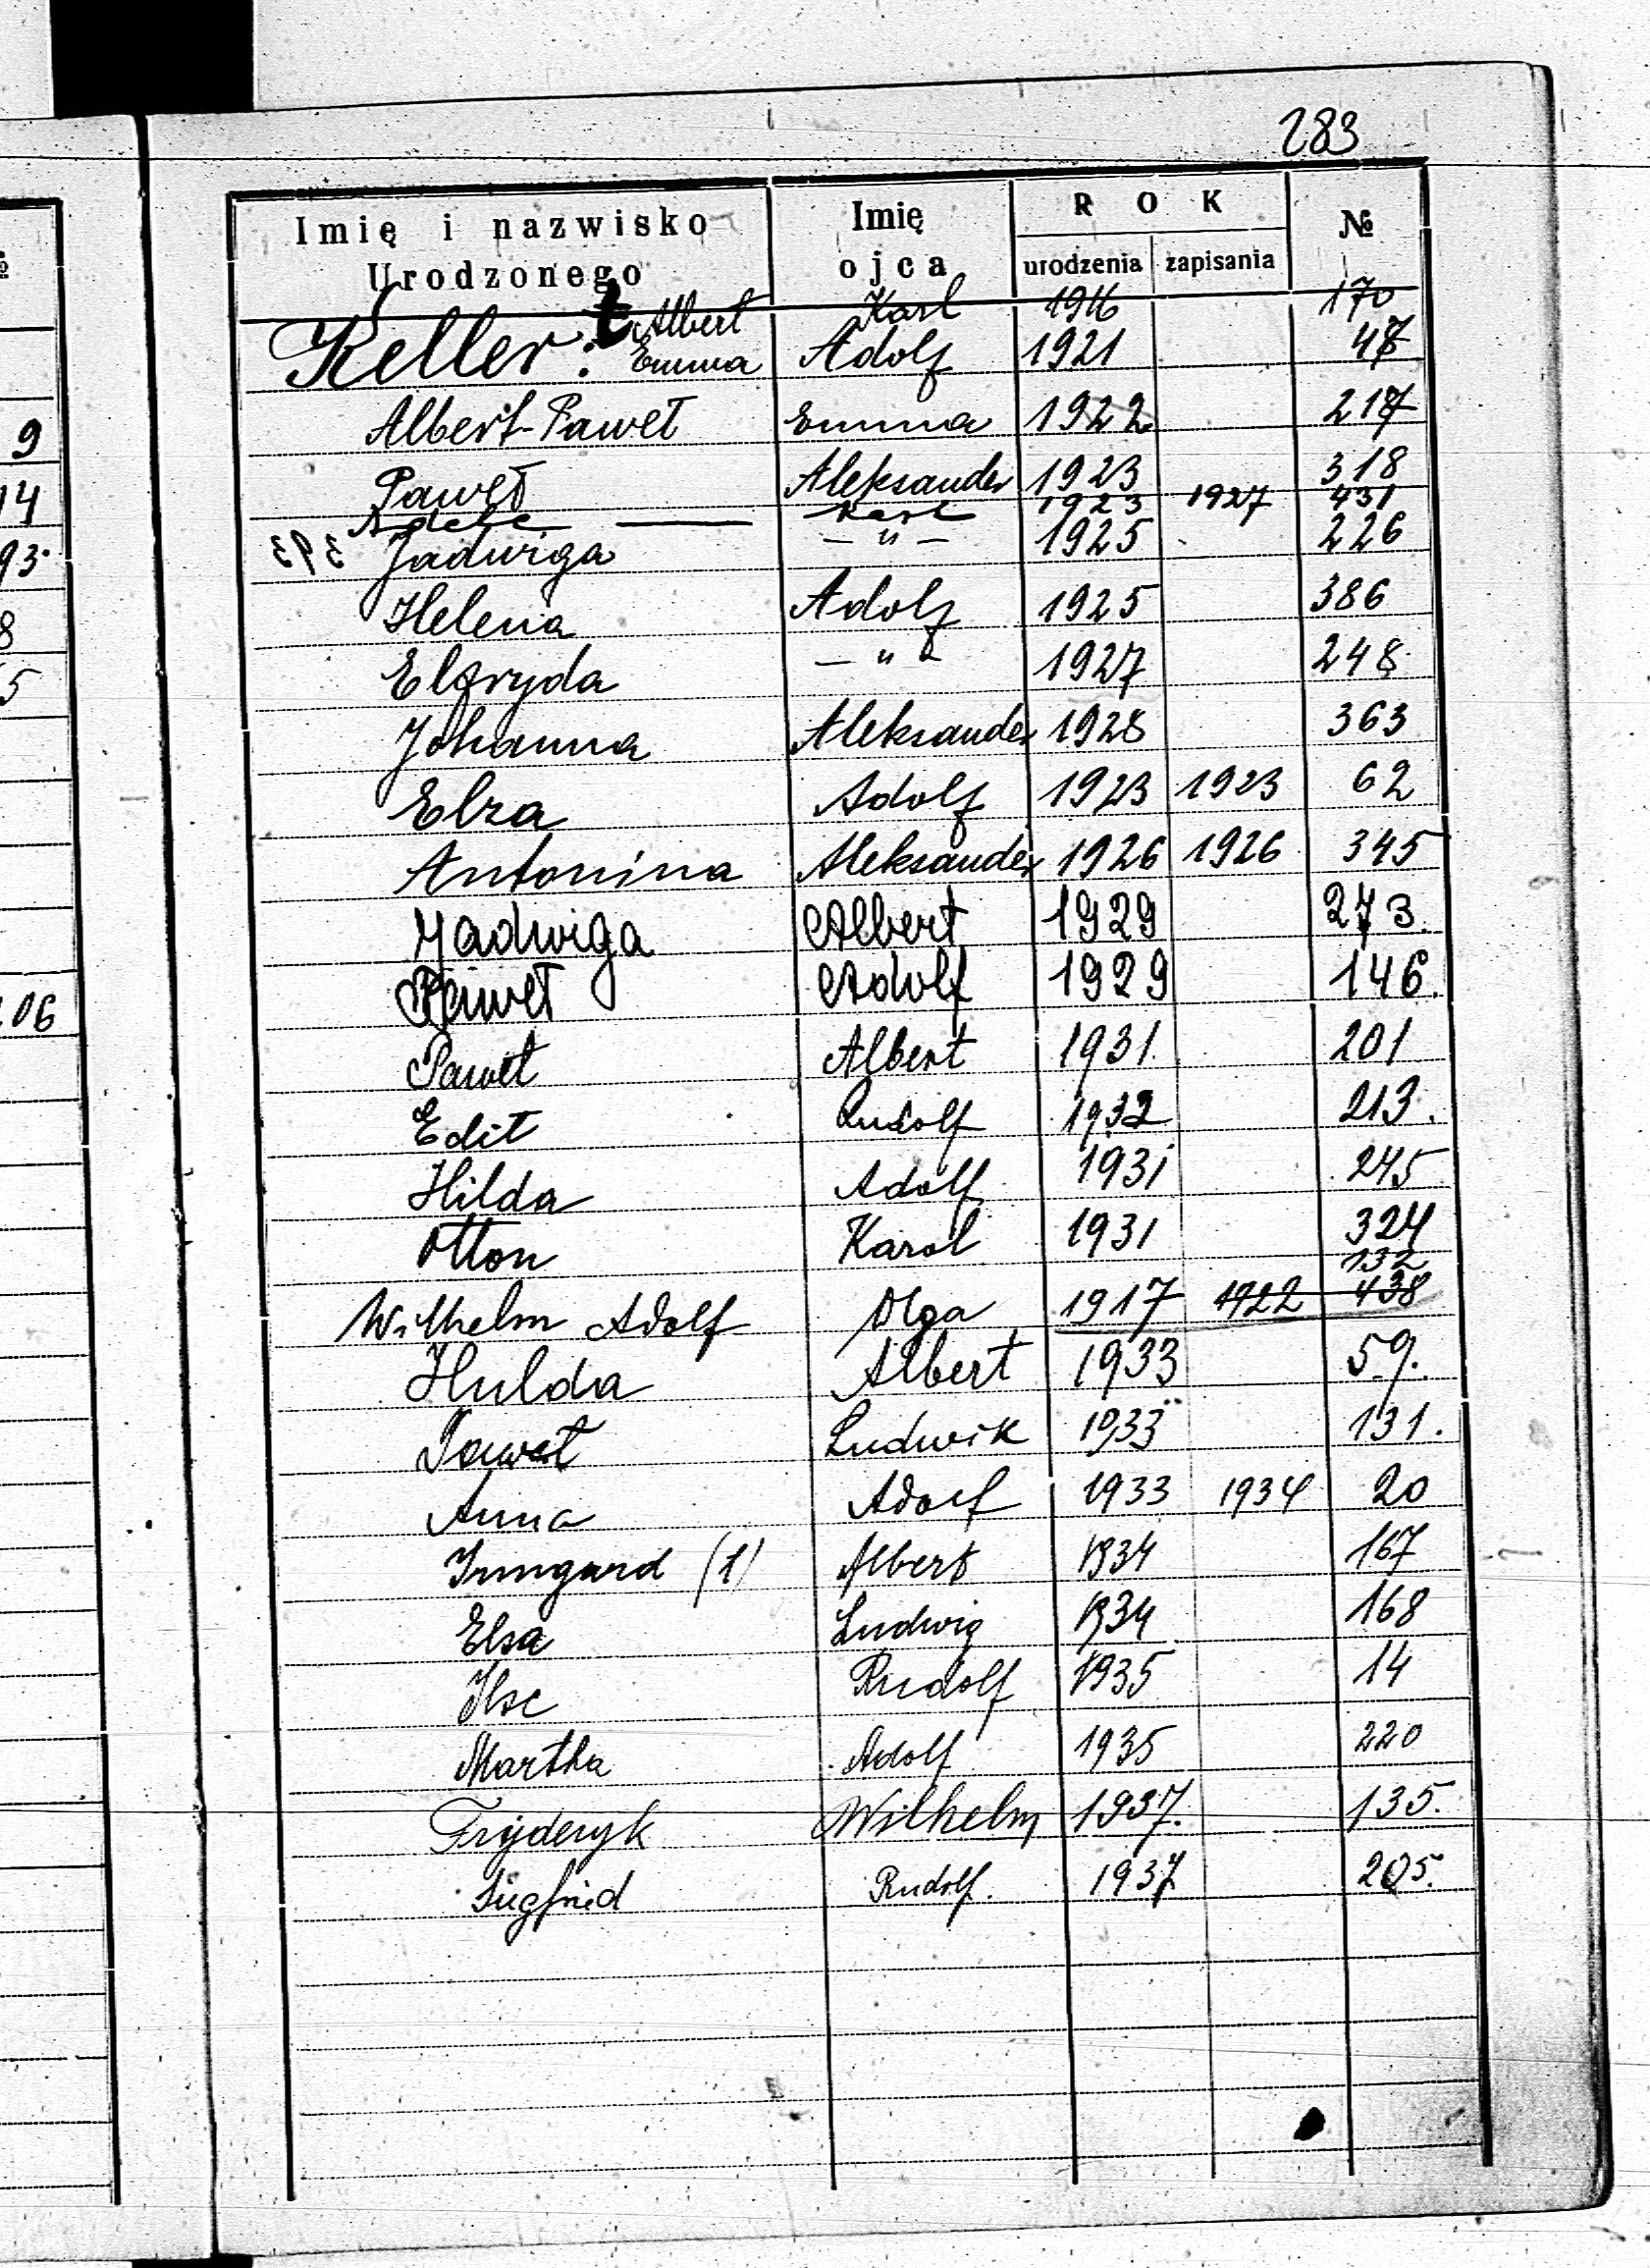 283
Imię i nazwisko Urodzonego Imię ojca ROK urodzenia zapisania №
Keller: Albert Karl 1916 170
Emma Adolf 1921 47
Albert-Paweł Emma 1922 217
9
Paweł Aleksander 1923 318
14
Adele Karl 1923 1927 431
Jadwiga — " — 1925 226
93.
Helena Adolf 1925 386
8
Elfryda — " — 1927 248
5
Johanna Aleksander 1928 363
Elza Adolf 1923 1923 62
Antonina Aleksander 1926 1926 345
Jadwiga Albert 1929 273.
Paweł Adolf 1929 146.
06
Paweł Albert 1931. 201
Edit Rudolf 1932 213.
Hilda Adolf 1931 245
Otton Karol 1931 324
132
Wilhelm Adolf Olga 1917 1922 438
Hulda Albert 1933 59.
Paweł Ludwik 1933 131.
Anna Adolf 1933 1934 20
Irmgard (1) Albert 1934 167
Elsa Ludwig 1934 168
Ilse Rudolf 1935 14
Martha Adolf 1935 220
Fryderyk Wilhelm 1937. 135.
Sigfried Rudolf. 1937 205.